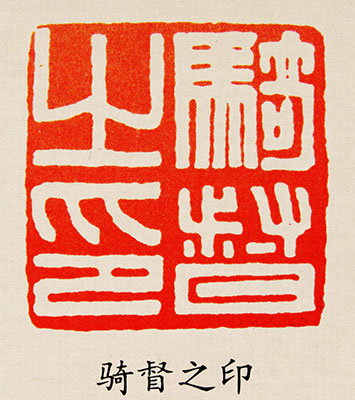 騎督
之印
骑督之印